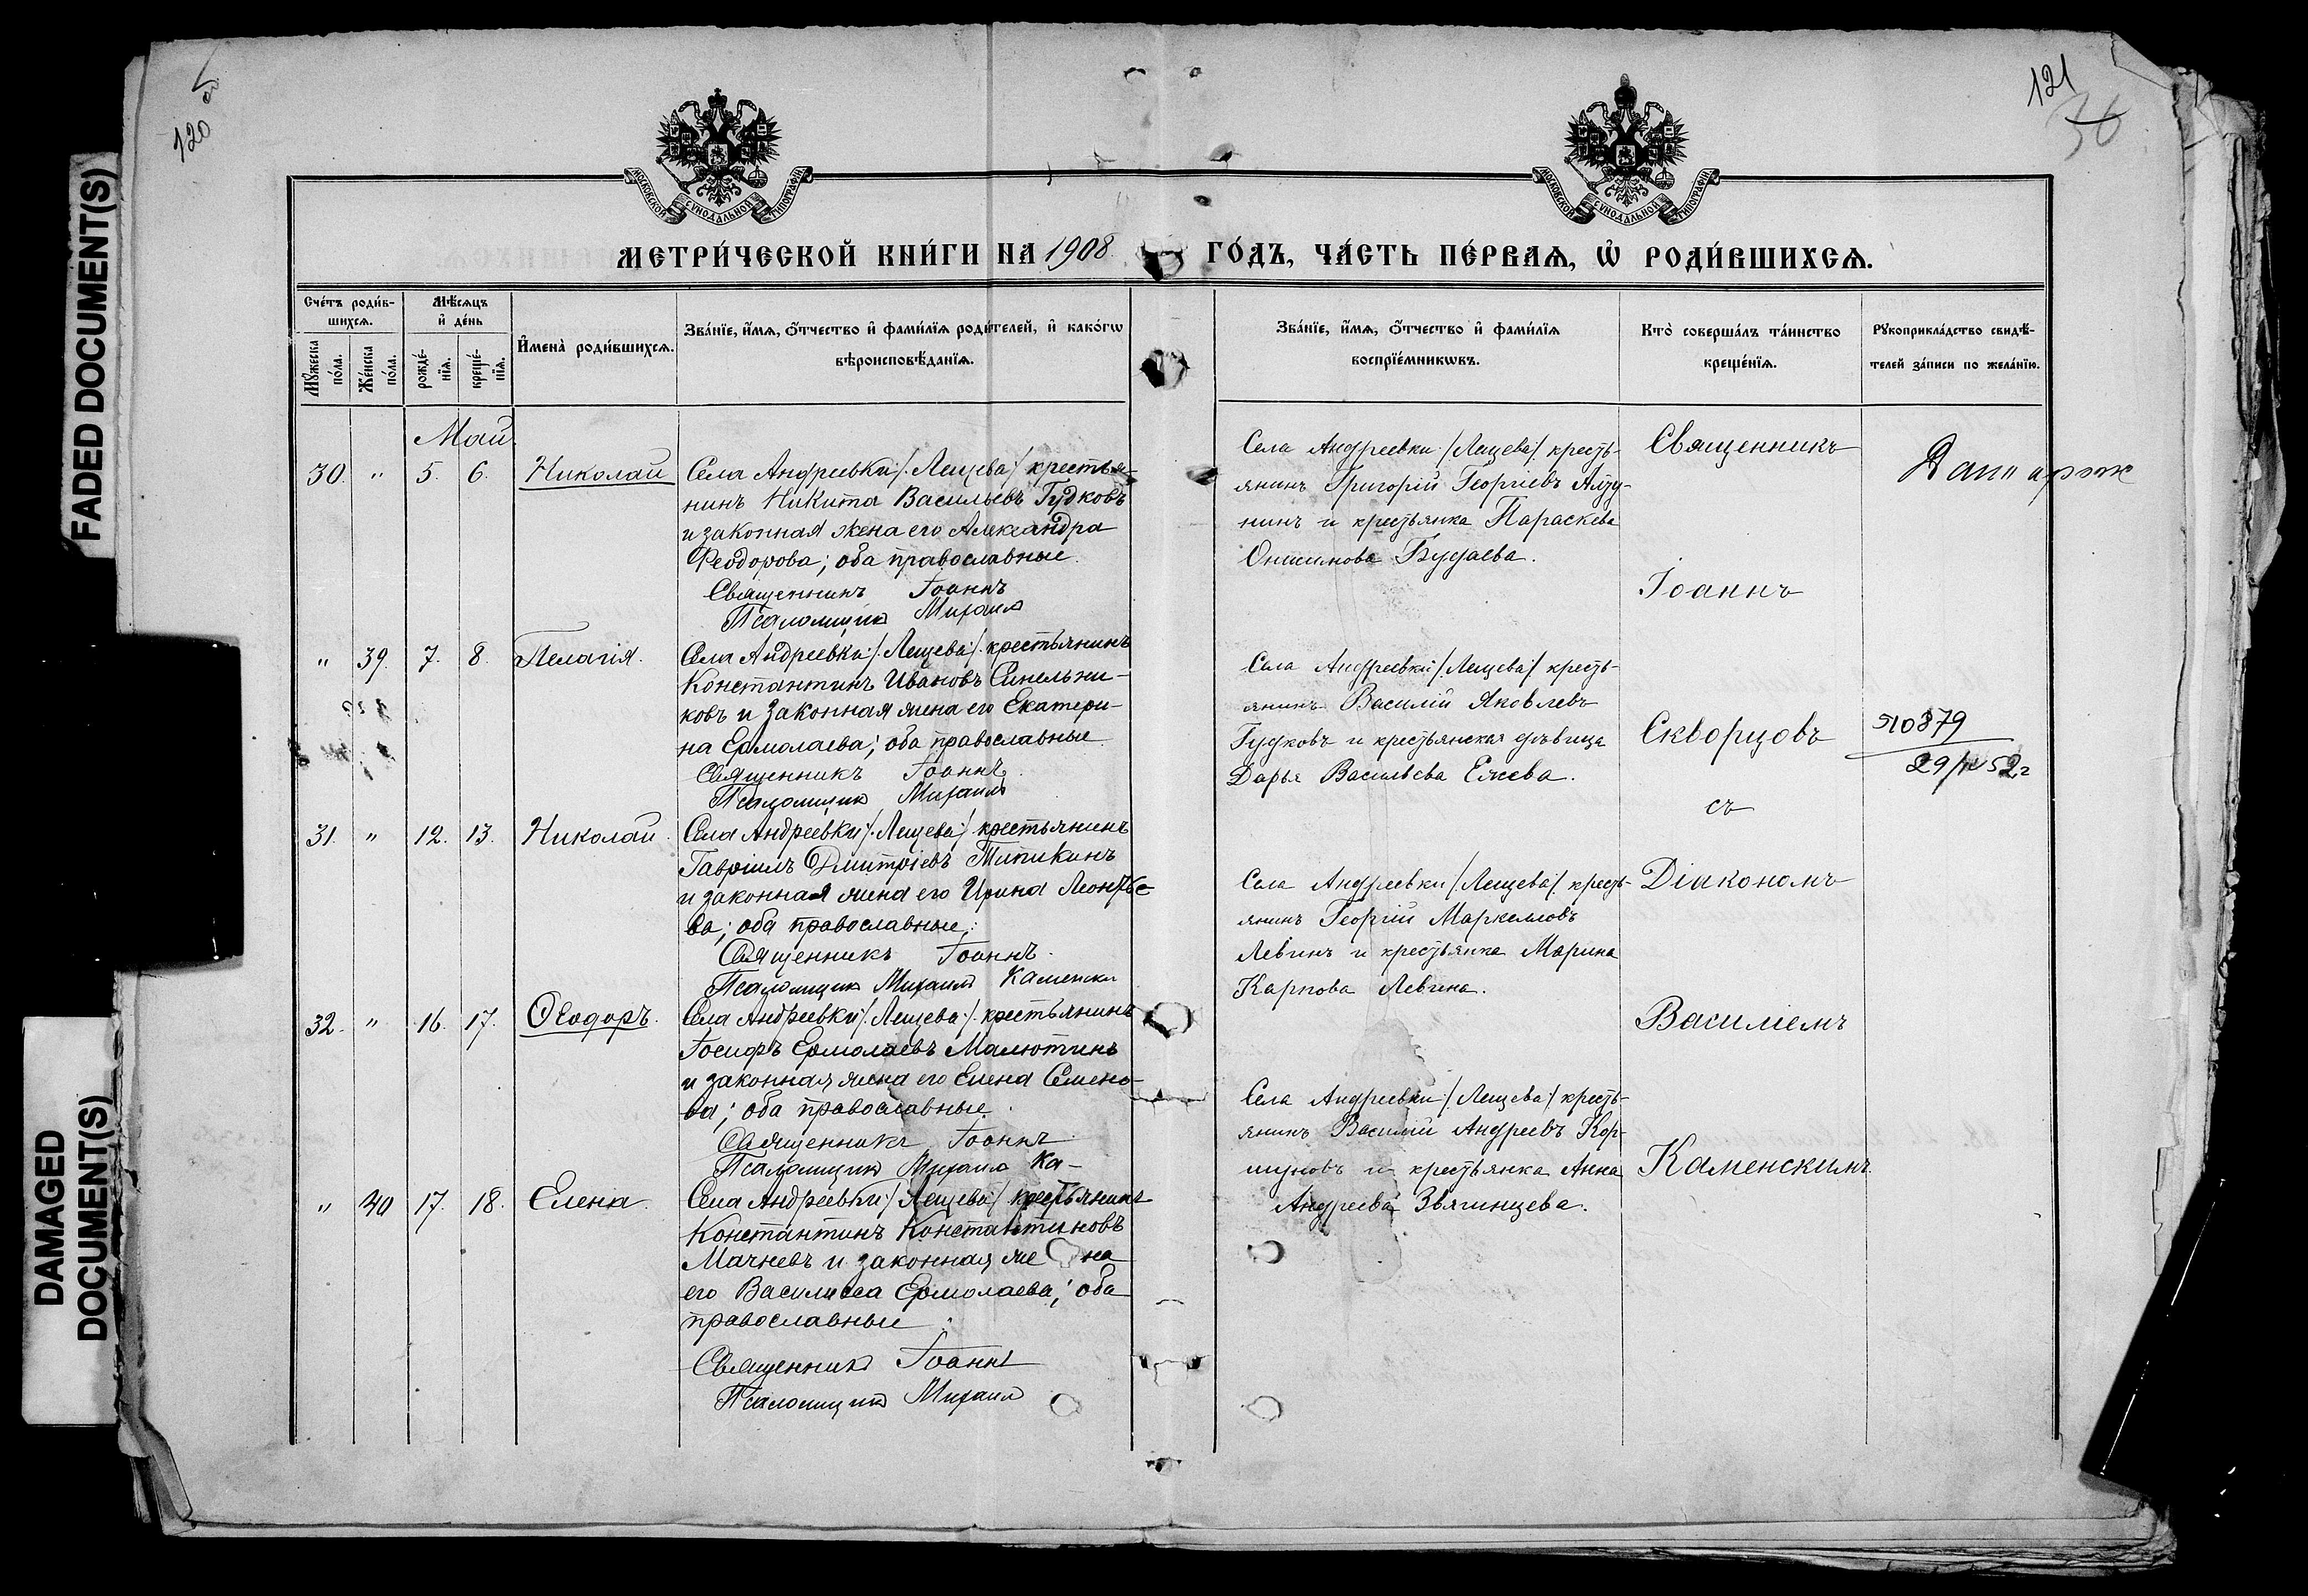 FADED DOCUMENT(S)
DAMAGED
DOCUMENT(S)
120
121
36
МОСКОВСКОЙ СѴНОДАЛЬНОЙ ТИПОГРАФІИ
МОСКОВСКОЙ СѴНОДАЛЬНОЙ ТИПОГРАФІИ
МЕТРИ́ЧЕСКОЙ КНИ́ГИ НА 1908 ГО́ДЪ, ЧА́СТЬ ПЕ́РВАѦ, Ѡ҆ РОДИ́ВШИХСѦ.
Сче́тъ роди́в-
шихсѧ.
Мꙋ́жеска
по́ла.
Же́нска
по́ла.
Мѣ́сѧцъ
и҆ де́нь
рожде́-
нїѧ.
креще́-
нїѧ.
И҆мена̀ роди́вшихсѧ.
Зва́нїе, и҆́мѧ, ѻ҆́тчество и҆ фами́лїѧ роди́телей, и҆ како́гѡ
вѣроисповѣ́данїѧ.
Зва́нїе, и҆́мѧ, ѻ҆́тчество и҆ фами́лїѧ
воспрїе́мникѡвъ.
Кто̀ соверша́лъ та́инство
креще́нїѧ.
Рꙋкоприкла́дство свидѣ́-
телей за́писи по жела́нїю.
Май.
30. " 5. 6. Николай
Села Андреевки /Лещева/ крестья-
нинъ Никита Васильевъ Гудковъ
и законная жена его Александра
Феодорова; оба православные.
Священникъ Іоаннъ
Псаломщик Михаил
Села Андреевки /Лещева/ кресть-
янинъ Григорій Георгіевъ Алту-
нинъ и крестьянка Параскева
Онисимова Будаева.
" 39. 7. 8. Пелагія.
Села Андреевки /Лещева/ крестьянинъ
Константинъ Ивановъ Синельни-
ковъ и законная жена его Екатери-
на Ермолаева; оба православные.
Священникъ Іоаннъ
Псаломщик Михаил
Села Андреевки /Лещева/ кресть-
янинъ Василій Яковлевъ
Гудковъ и крестьянская дѣвица
Дарья Васильева Ежева.
31. " 12. 13. Николай.
Села Андреевки /Лещева/ крестьянинъ
Гавріилъ Дмитріевъ Типикинъ
и законная жена его Ирина Леонтье-
ва; оба православные.
Священникъ Іоаннъ.
Псаломщик Михаил Каменски
Села Андреевки /Лещева/ кресть-
янинъ Георгій Маркелловъ
Левинъ и крестьянка Марина
Карпова Левина.
32. " 16. 17. Ѳеодоръ.
Села Андреевки /Лещева/ крестьянинъ
Іосифъ Ермолаевъ Малютинъ
и законная жена его Елена Семено-
ва; оба православные.
Священникъ Іоаннъ
Псаломщик Михаил Ка-
Села Андреевки /Лещева/ кресть-
янинъ Василій Андреевъ Кор-
шуновъ и крестьянка Анна
Андреева Звягинцева.
" 40 17. 18. Елена.
Села Андреевки /Лещева/ крестьянинъ
Константинъ Константиновъ
Мачневъ и законная жена
его Василисса Ермолаева; оба
православные.
Священник Іоаннъ
Псаломщик Михаил
Священникъ
Іоаннъ
Скворцовъ
съ
Діакономъ
Василіемъ
Каменскимъ